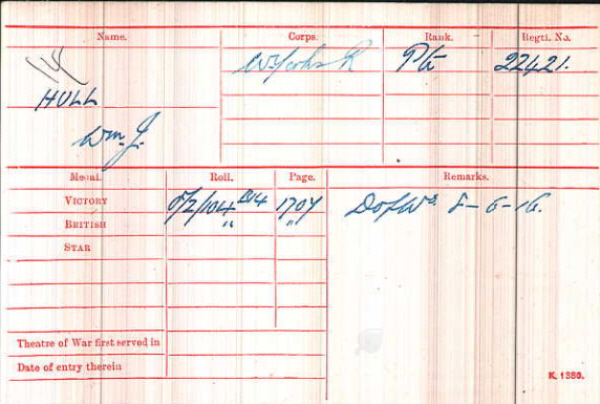 Name. Corps. Rank. Regtl. No.
W York R Pte 22421.
HULL
Wm. J.
Medal. Roll. Page. Remarks.
VICTORY 0/2/104 B14 1704 D of Wds 8-6-16.
BRITISH " "
STAR
Theatre of War first served in
Date of entry therein
K. 1380.